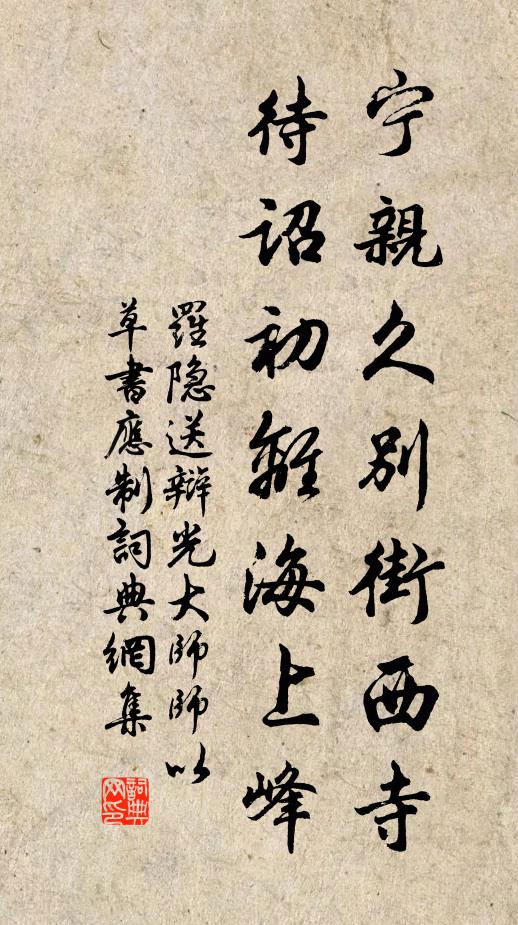 宁親久別街西寺
待詔初離海上峰
羅隐送辯光大師師以
草書應制詞典網集
詞典
网印